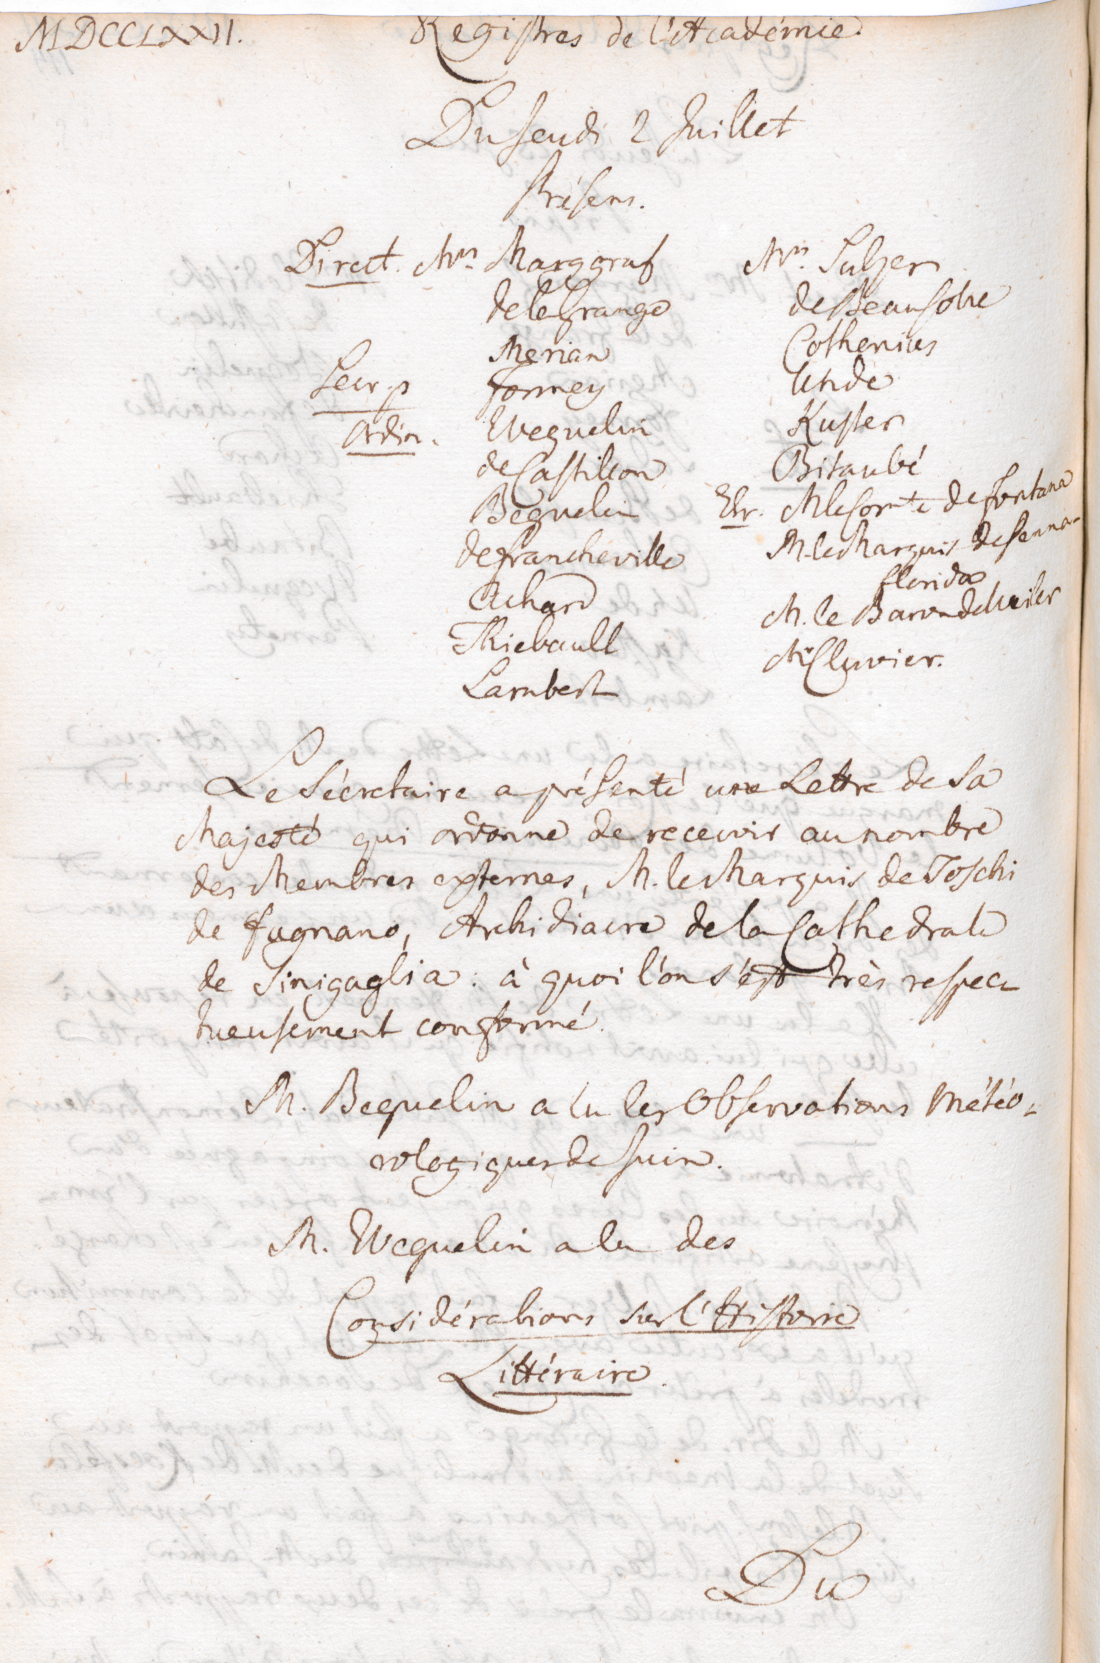 MDCCLXXII. Registres de l'Académie.
Du Jeudi 2 Juillet
Présens.
Direct. Mrs Marggraf
de la Grange
Merian
Secr. p Formey
Ordin. Weguelin
de Castillon
Béguelin
de Francheville
Achard
Thiebault
Lambert
Mrs. Sulzer
de Beausobre
Cothenius
Uhde
Kuster
Bitaubé
Etr. M. le Comte de Fontana
M. le Marquis de Penna-
florida
M. le Baron de
Mr Cluvier.
Le Sécretaire a présenté une Lettre de Sa
Majesté qui ordonne de recevoir au nombre
des Membres externes, M. le Marquis de Toschi
de Fagnano, Archidiacre de la Cathedrale
de Sinigaglia: à quoi l'on s'est très respec-
tueusement conformé.
M. Beguelin a lu les Observations Météo-
rologiques de Juin.
M. Weguelin a lu des
Considérations sur l'Histoire
Littéraire.
Du